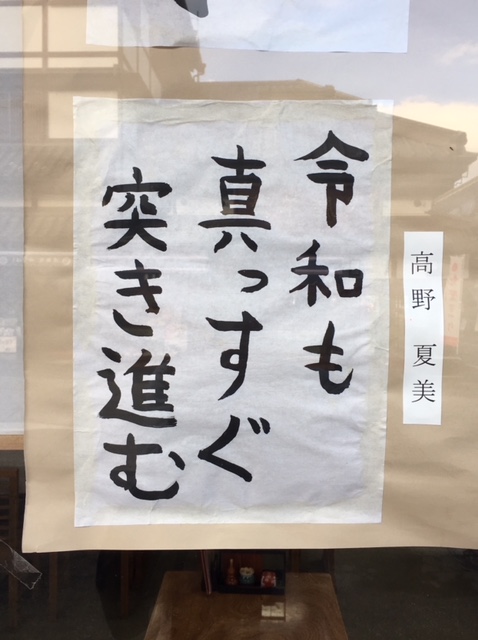 令和も
真っすぐ
突き進む
高野 夏美